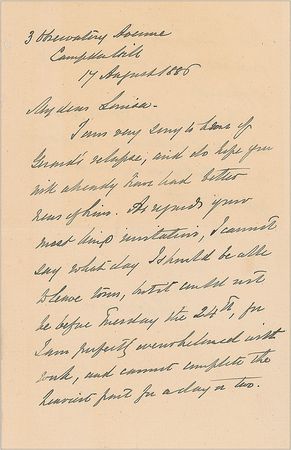 3 Observatory Avenue
Campden Hill
17 August 1886
My dear Louisa.
I am very sorry to hear of
Gerard's relapse, and do hope you
will already have had better
news of him. As regards your
most kind invitation, I cannot
say what day I should be able
to leave town, but it could not
be before Tuesday the 24th, for
I am perfectly overwhelmed with
work, and cannot complete the
heaviest part for a day or two.